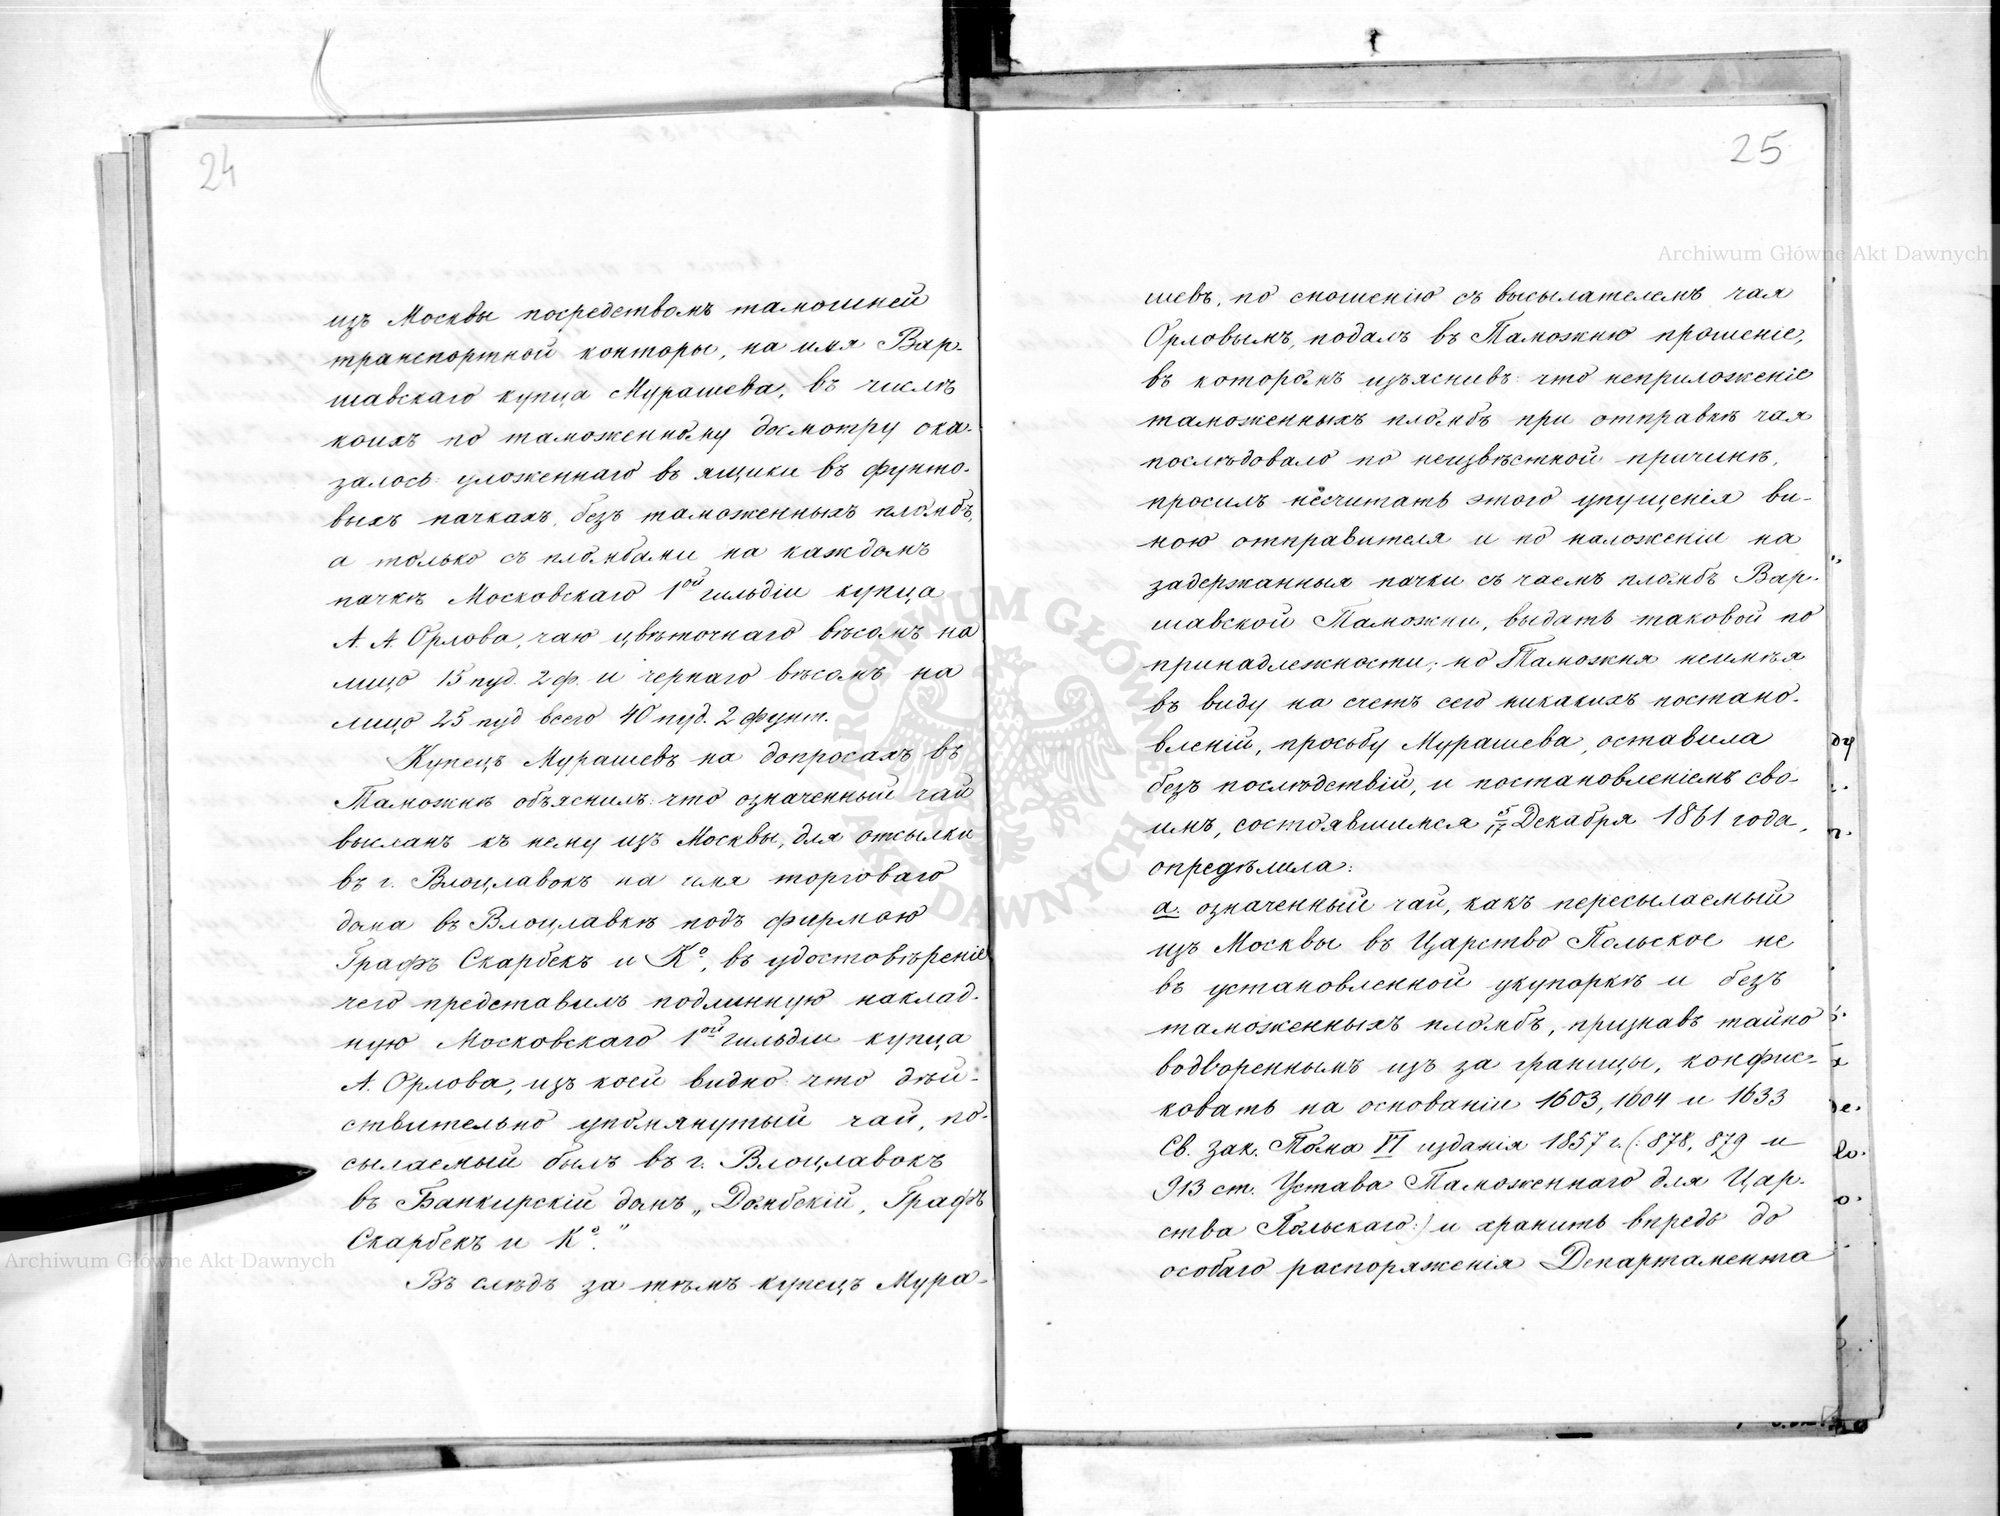 24
изъ Москвы посредствомъ тамошней
транспортной конторы, на имя Вар-
шавскаго купца Мурашева, въ числѣ
коихъ по таможенному досмотру ока-
залось: уложеннаго въ ящики въ фунто-
выхъ пачкахъ, безъ таможенныхъ пломбъ,
а только съ пломбами на каждомъ
пачкѣ Московскаго 1ой гильдіи купца
А. А. Орлова, чаю цвѣточнаго вѣсомъ на
лицо 15 пуд. 2 ф. и чернаго вѣсомъ на
лицо 25 пуд всего 40 пуд. 2 фунт.
Купецъ Мурашевъ на допросахъ въ
Таможнѣ объяснилъ: что означенный чай
высланъ къ нему изъ Москвы, для отсылки
въ г. Влоцлавокъ на имя торговаго
дома въ Влоцлавкѣ подъ фирмою
Графъ Скарбекъ и Ко, въ удостовѣреніе
чего представилъ подлинную наклад-
ную Московскаго 1ой гильдіи купца
А. Орлова, изъ коей видно: что дѣй-
ствительно упомянутый чай, по-
сылаемый былъ въ г. Влоцлавокъ
въ Банкирскій домъ „Домбскій, Графъ
Скарбекъ и Ко."
Въ слѣдъ за тѣмъ купецъ Мура-
25
шевъ, по сношенію съ высылателемъ чая
Орловымъ, подалъ въ Таможню прошеніе,
въ которомъ изъяснивъ: что неприложеніе
таможенныхъ пломбъ при отправкѣ чая
послѣдовало по неизвѣстной причинѣ,
просилъ несчитать этого упущенія ви-
ною отправителя и по наложеніи на
задержанныя пачки съ чаемъ пломбъ Вар-
шавской Таможни, выдать таковой по
принадлежности; но Таможня неимѣя
въ виду на счетъ сего никакихъ постано-
вленій, просьбу Мурашева, оставила
безъ послѣдствій, и постановленіемъ сво-
имъ, состоявшимся 5/17 Декабря 1861 года,
опредѣлила:
а. означенный чай, какъ пересылаемый
изъ Москвы въ Царство Польское не
въ установленной укупоркѣ и безъ
таможенныхъ пломбъ, признавъ тайно
водвореннымъ изъ за границы, конфис-
ковать на основаніи 1603, 1604 и 1633
Св. зак. Тома VI изданія 1857 г. (: 878, 879 и
913 ст. Устава Таможеннаго для Цар-
ства Польскаго:) и хранить впредь до
особаго распоряженія Департамента
Archiwum Główne Akt Dawnych
Archiwum Główne Akt Dawnych
ARCHIWUM GŁÓWNE AKT DAWNYCH